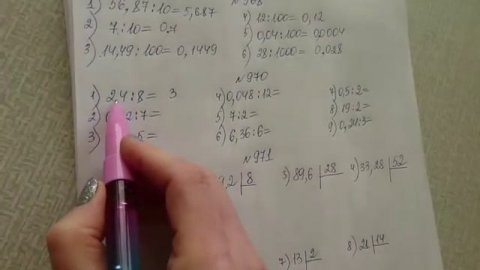 1) 56,87:10=5,687
2) 7:10=0,7
3) 14,49:100=0,1449
№ 968
4) 12:100=0,12
5) 0,04:100=0,0004
6) 28:1000=0,028
№ 970
1) 2,4:8= 3
2) 2:7=
3) 5=
4) 0,048:12=
5) 7:2=
6) 6,36:6=
7) 0,5:2=
8) 19:2=
9) 0,21:3=
№ 971
9,2 8
3) 89,6 28
4) 33,28 52
7) 13 2
8) 21 14